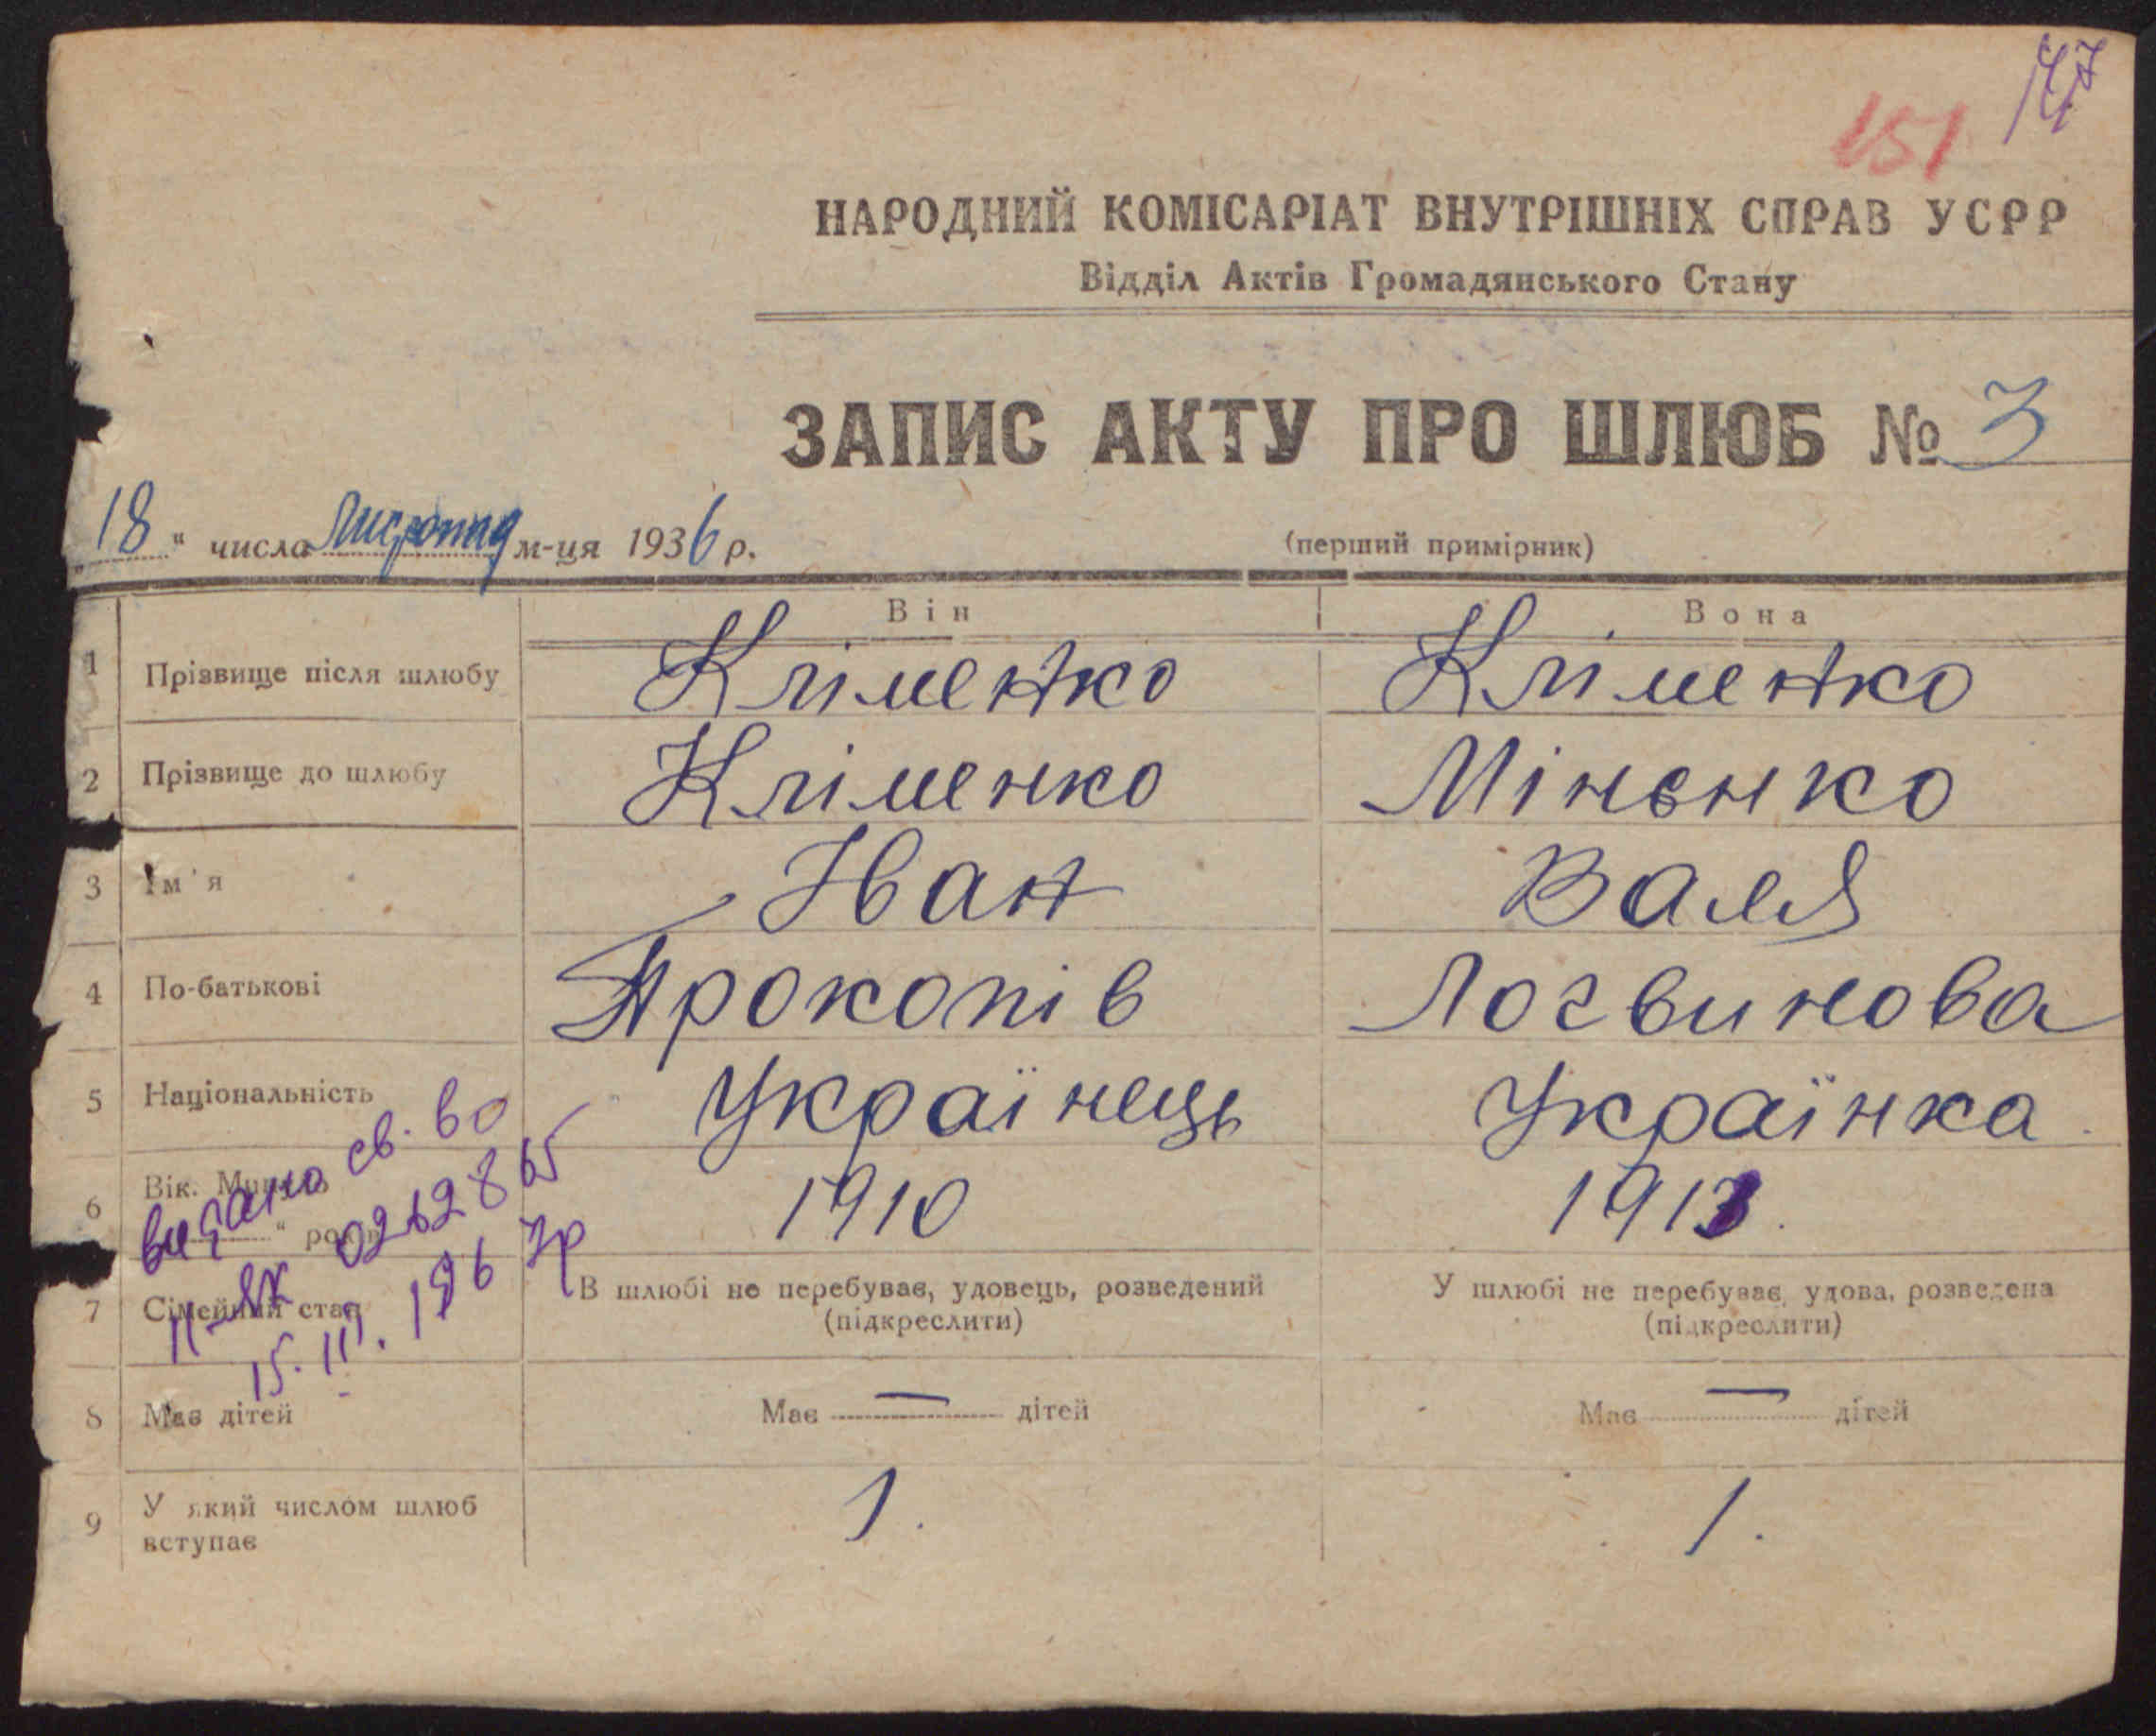 147
151
НАРОДНИЙ КОМІСАРІАТ ВНУТРІШНІХ СПРАВ УСРР
Відділ Актів Громадянського Стану
ЗАПИС АКТУ ПРО ШЛЮБ № 3
„18“ числа Листопад м-ця 1936 р.
(перший примірник)
Він Вона
1 Прізвище після шлюбу Кліменко Кліменко
2 Прізвище до шлюбу Кліменко Міненко
3 Ім'я Іван Валя
4 По-батькові Прокопів Логвинова
5 Національність Українець Українка
6 Вік. 1910 1913.
видано св. во
II-ЯК 0262865
15. III. 1967р
7 Сімейний стан В шлюбі не перебуває, удовець, розведений У шлюбі не перебуває, удова, розведена
(підкреслити) (підкреслити)
8 Має дітей Має — дітей Має — дітей
9 У який числом шлюб 1. 1.
вступає